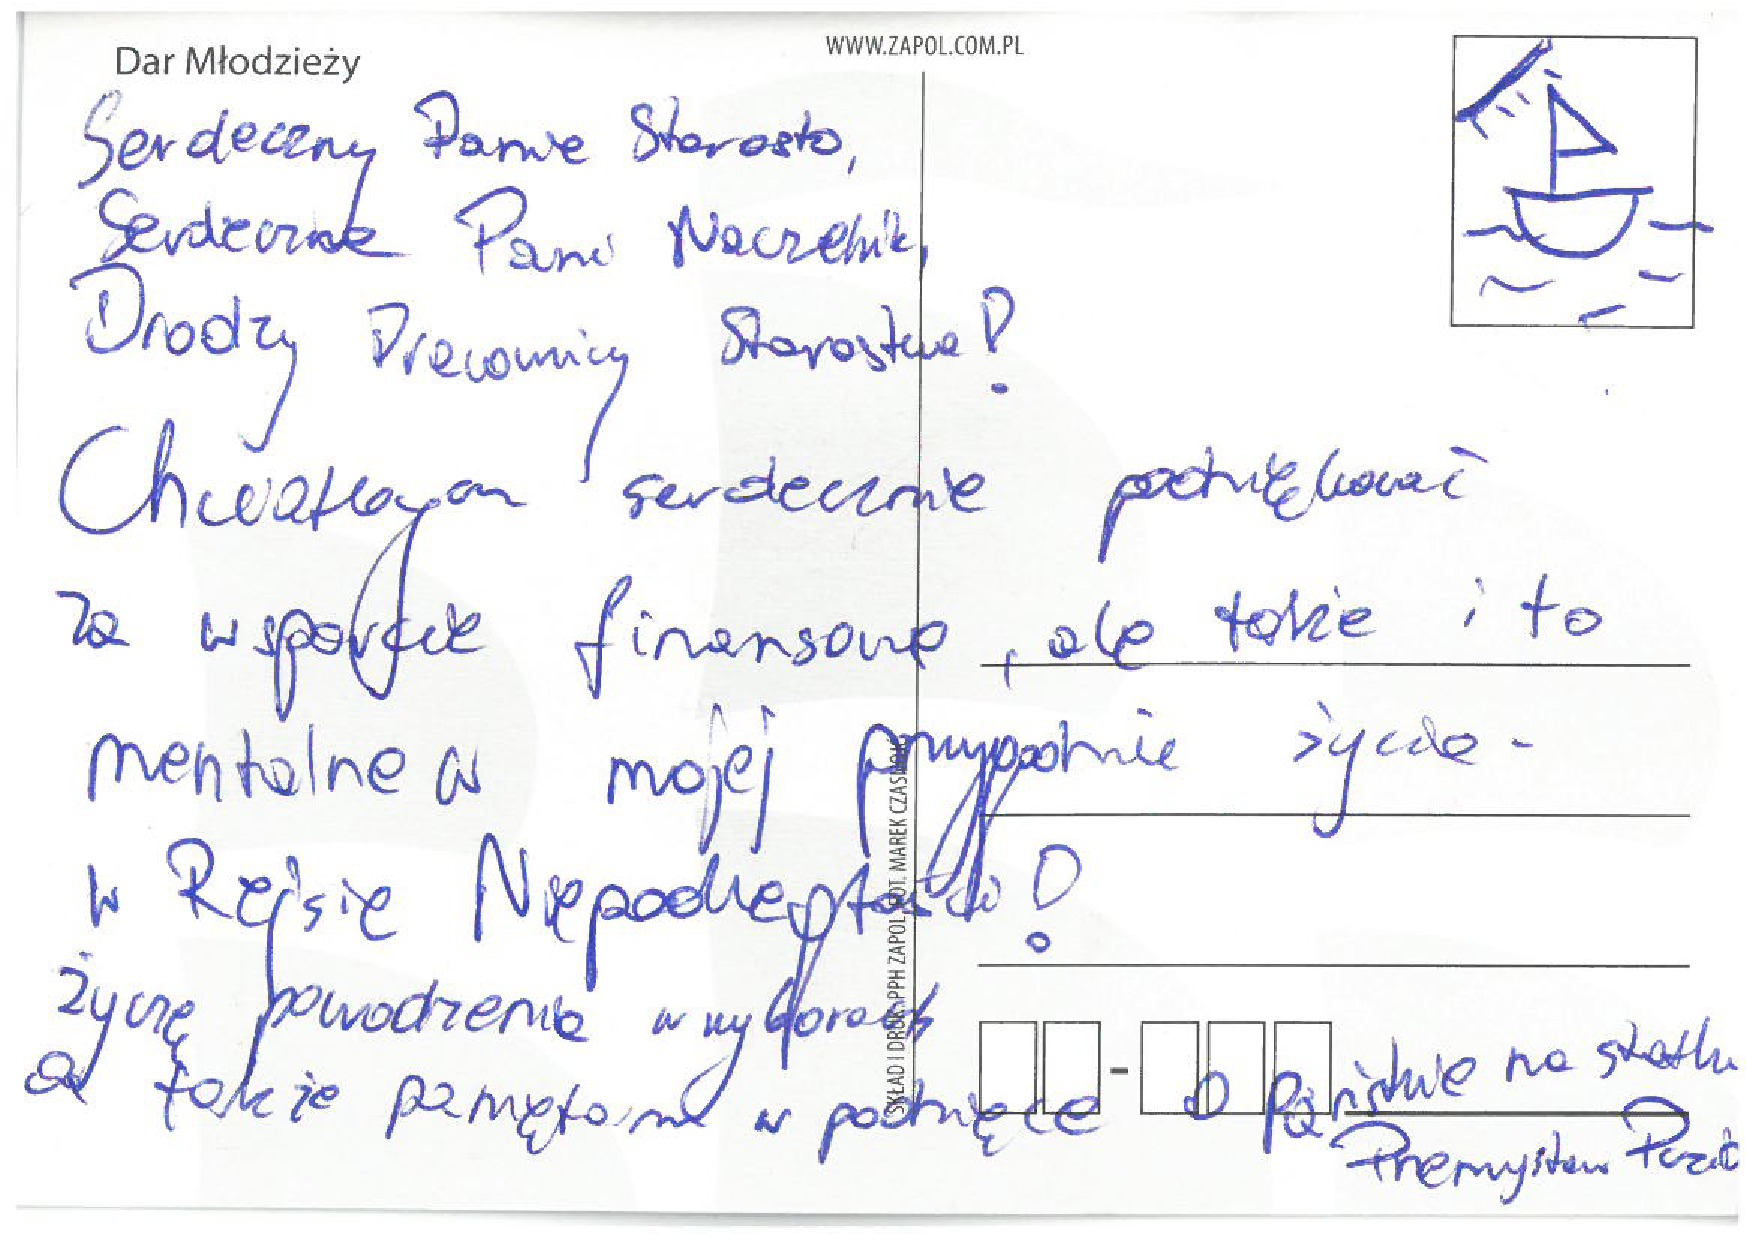 Dar Młodzieży
WWW.ZAPOL.COM.PL
Serdeczny Panie Starosto,
Serdeczna Pani Naczelnik,
Drodzy Pracownicy Starostwa!
Chciałbym serdecznie podziękować
za wsparcie finansowe, ale także i to
mentalne w mojej przygodzie życia -
w Rejsie Niepodległości!
Życzę powodzenia w wyborach
a także pamiętam w podzięce o Państwie na statku
Przemysław
SKŁAD I DRUK: PPH ZAPOL, FOT. MAREK CZASNOJĆ